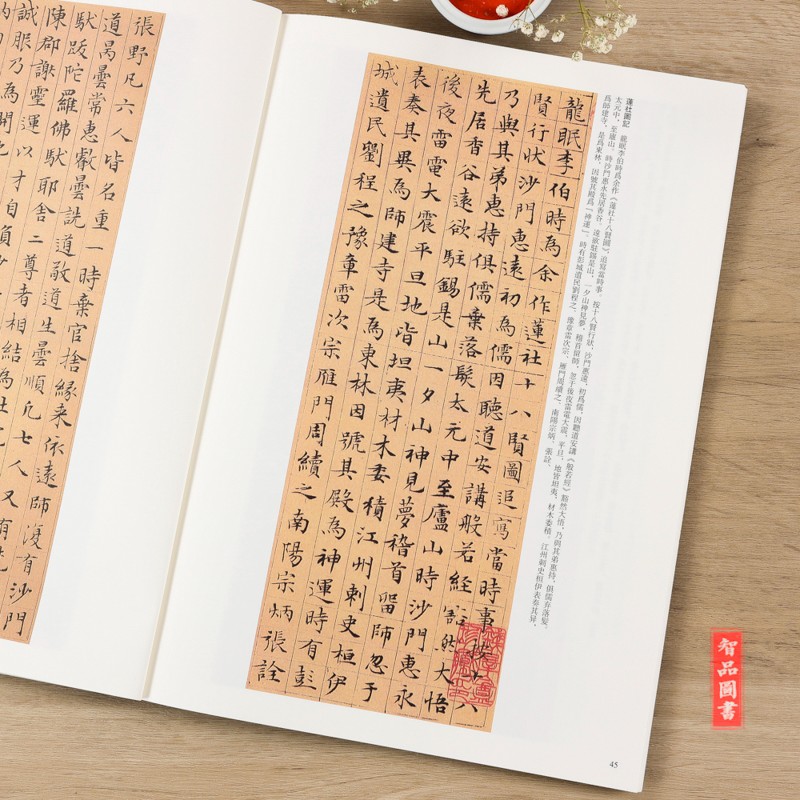 蓮社圖記
龍眠李伯時爲余作《蓮社十八賢圖》，追寫當時事。按十八賢行狀，沙門惠遠，初爲儒，因聽道安講《般若經》豁然大悟，乃與其弟惠持，俱儒弃落髮，
太元中，至廬山，時沙門惠永先居香谷，遠欲駐錫是山，一夕山神見夢，稽首留師，忽于後夜雷電大震，平旦，地皆坦夷，材木委積，江州刺史桓伊表奏其异，
爲師建寺，是爲東林，因號其殿爲『神運』。時有彭城遺民劉程之、豫章雷次宗、雁門周續之、南陽宗炳、張詮、
龍眠李伯時為余作蓮社十八賢圖追寫當時事按十八
賢行狀沙門惠遠初為儒因聽道安講般若經豁然大悟
乃與其弟惠持俱儒棄落髮太元中至廬山時沙門惠永
先居香谷遠欲駐錫是山一夕山神見夢稽首留師忽于
後夜雷電大震平旦地皆坦夷材木委積江州刺史桓伊
表奏其異為師建寺是為東林因號其殿為神運時有彭
城遺民劉程之豫章雷次宗雁門周續之南陽宗炳張詮
45
張野凡六人皆名重一時棄官捨緣来依遠師復有沙門
道昺曇常惠叡曇詵道敬道生曇順凡七人又有梵
馱跋陀羅佛馱耶舍二尊者相結為社
陳郡謝靈運以才自負少
誠服乃為開
智品圖書